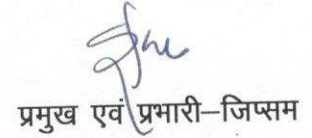 प्रमुख एवं प्रभारी–जिप्सम